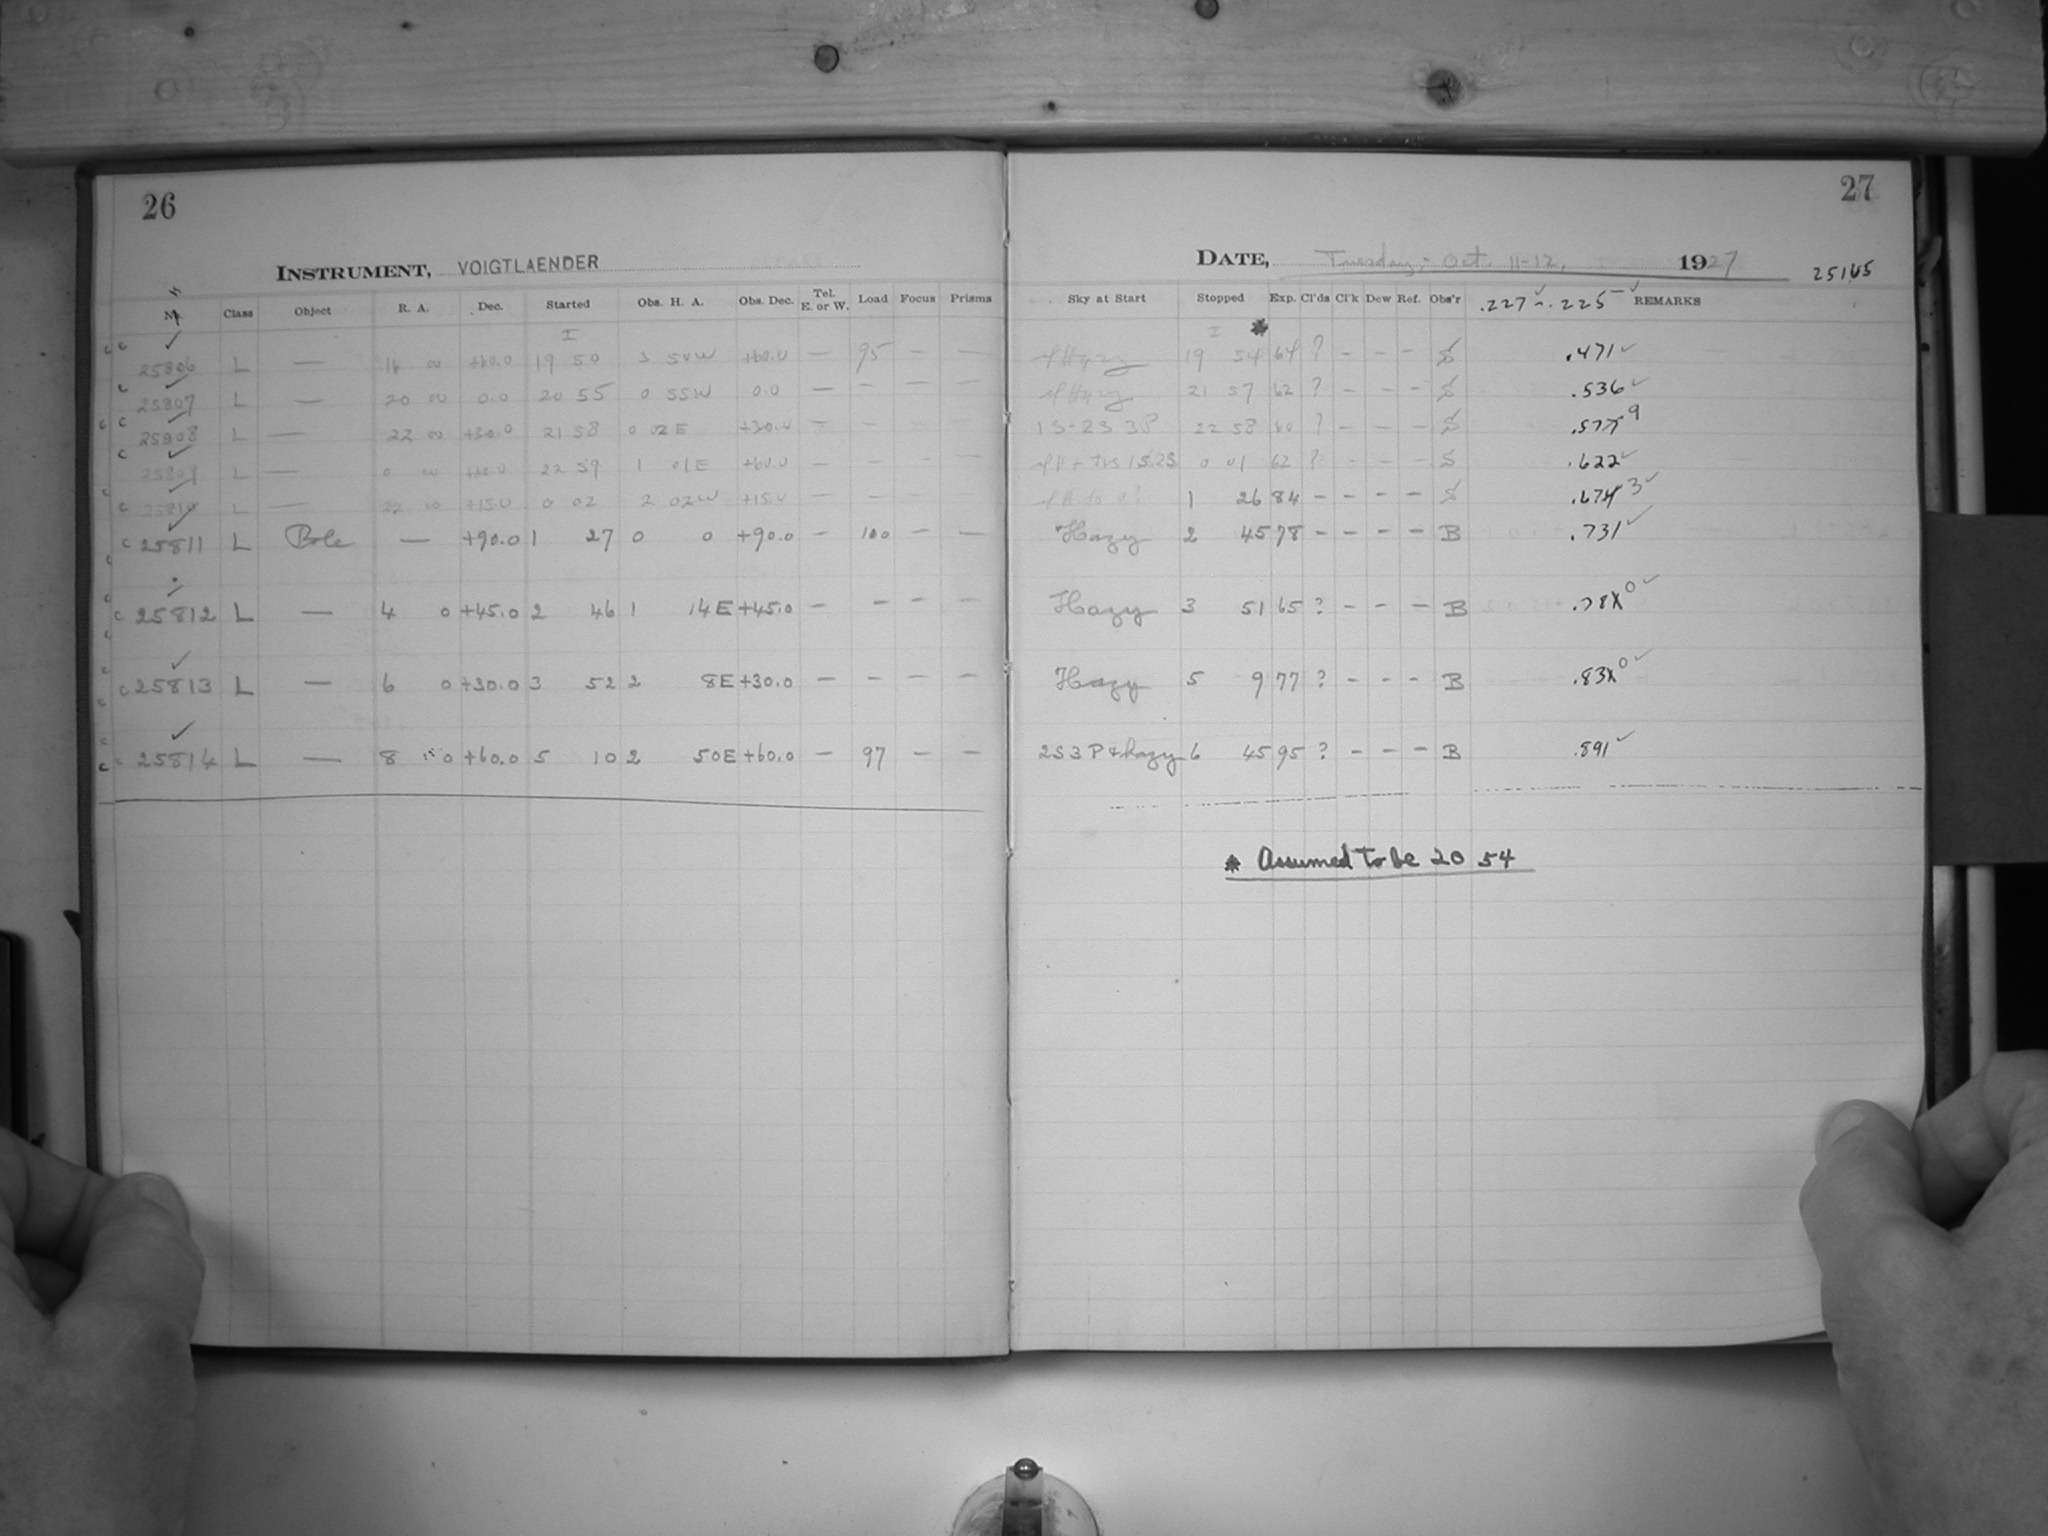 26
27
INSTRUMENT, VOIGTLAENDER
DATE, Tuesday, Oct. 11-12, 1927
25165
No. Class Object R. A. Dec. Started Obs. H. A. Obs. Dec. Tel. E. or W. Load Focus Prisms Sky at Start Stopped Exp. Cl'ds Cl'k Dew Ref. Obs'r .227 - .225 REMARKS
I I *
25806 L — 16 00 +60.0 19 50 3 50W +60.0 — 95 — — Hazy 19 54 64 ? - - - S .471
25807 L — 20 00 0.0 20 55 0 55W 0.0 — — — — Hazy 21 57 62 ? - - - S .536
25808 L — 22 00 +30.0 21 58 0 02E +30.0 — — — — 1S-2S 3P 22 58 60 ? - - - S .577 9
25809 L — 0 00 +60.0 22 59 1 01E +60.0 — — — — 1S.2S 0 01 62 ? - - - S .622
25810 L — 22 00 +15.0 0 02 2 02W +15.0 — — — — 1 26 84 - - - - S .674 3
25811 L Pole — +90.0 1 27 0 0 +90.0 — 100 — — Hazy 2 45 78 - - - - B .731
25812 L — 4 0 +45.0 2 46 1 14E +45.0 — — — — Hazy 3 51 65 ? - - - B .78 0
25813 L — 6 0 +30.0 3 52 2 8E +30.0 — — — — Hazy 5 9 77 ? - - - B .83 0
25814 L — 8 0 +60.0 5 10 2 50E +60.0 — 97 — — 2S3P & hazy 6 45 95 ? - - - B .891
* Assumed to be 20 54